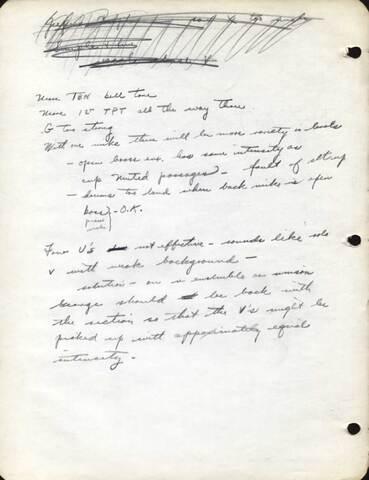 More TEN bell tone
More 1st TPT all the way thru
G too strong
With one mike there will be more variety in levels
- open brass ex. has same intensity as
cup muted passages - fault of set-up
- drums too loud when back mike is open
bass - O.K.
Four V's not effective - sounds like solo
V with weak background -
solution - on ensemble or unison
George should be back with
the section so that the V's might be
picked up with approximately equal
intensity -